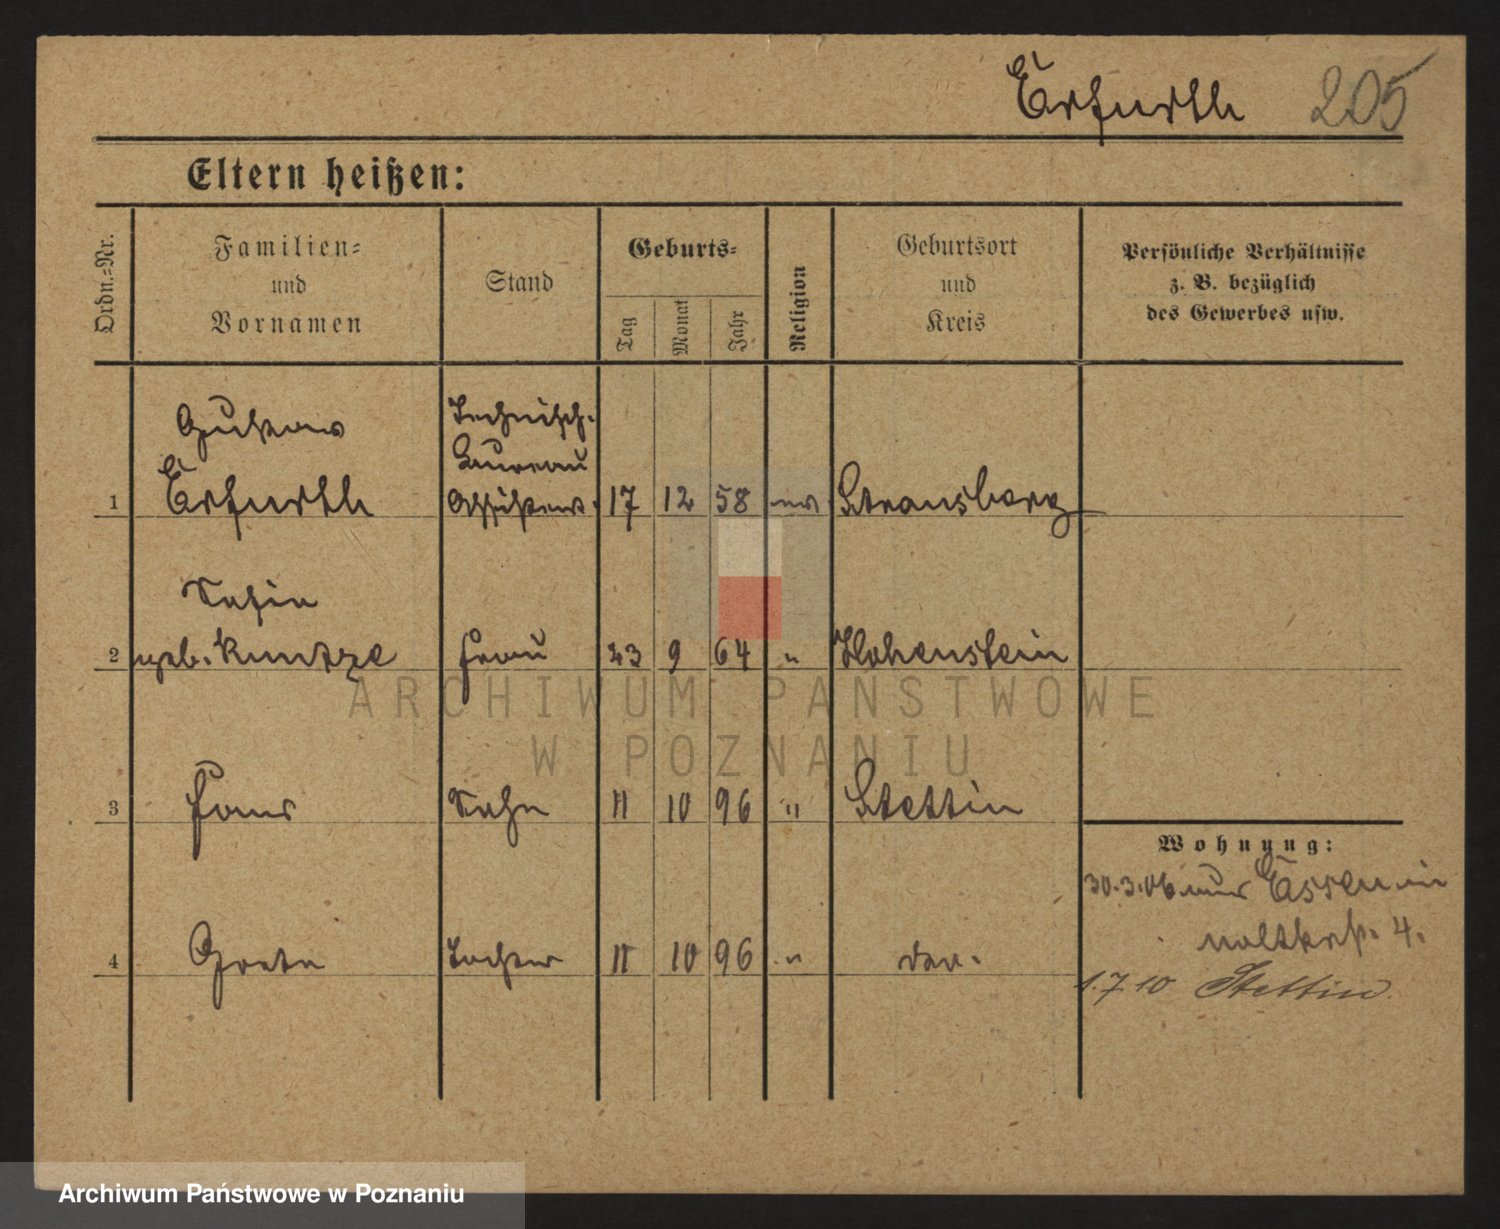 Erfurth 205
Eltern heißen:
Ordn.-Nr.
Familien-
und
Vornamen
Stand
Geburts-
Tag
Monat
Jahr
Religion
Geburtsort
und
Kreis
Persönliche Verhältnisse
z. B. bezüglich
des Gewerbes usw.
Gustav
Technisch.
Bureau
1 Erfurth Assistent. 17 12 58 ev Strausberg
Sofie
2 geb. Kuntze Frau 23 9 64 " Hohenstein
ARCHIWUM PAŃSTWOWE
W POZNANIU
3 Hans Sohn 11 10 96 " Stettin
Wohnung:
30.3.06 Essen
Moltkestr. 4.
4 Grete Tochter 11 10 96 "
1.7.10 Stettin.
Archiwum Państwowe w Poznaniu